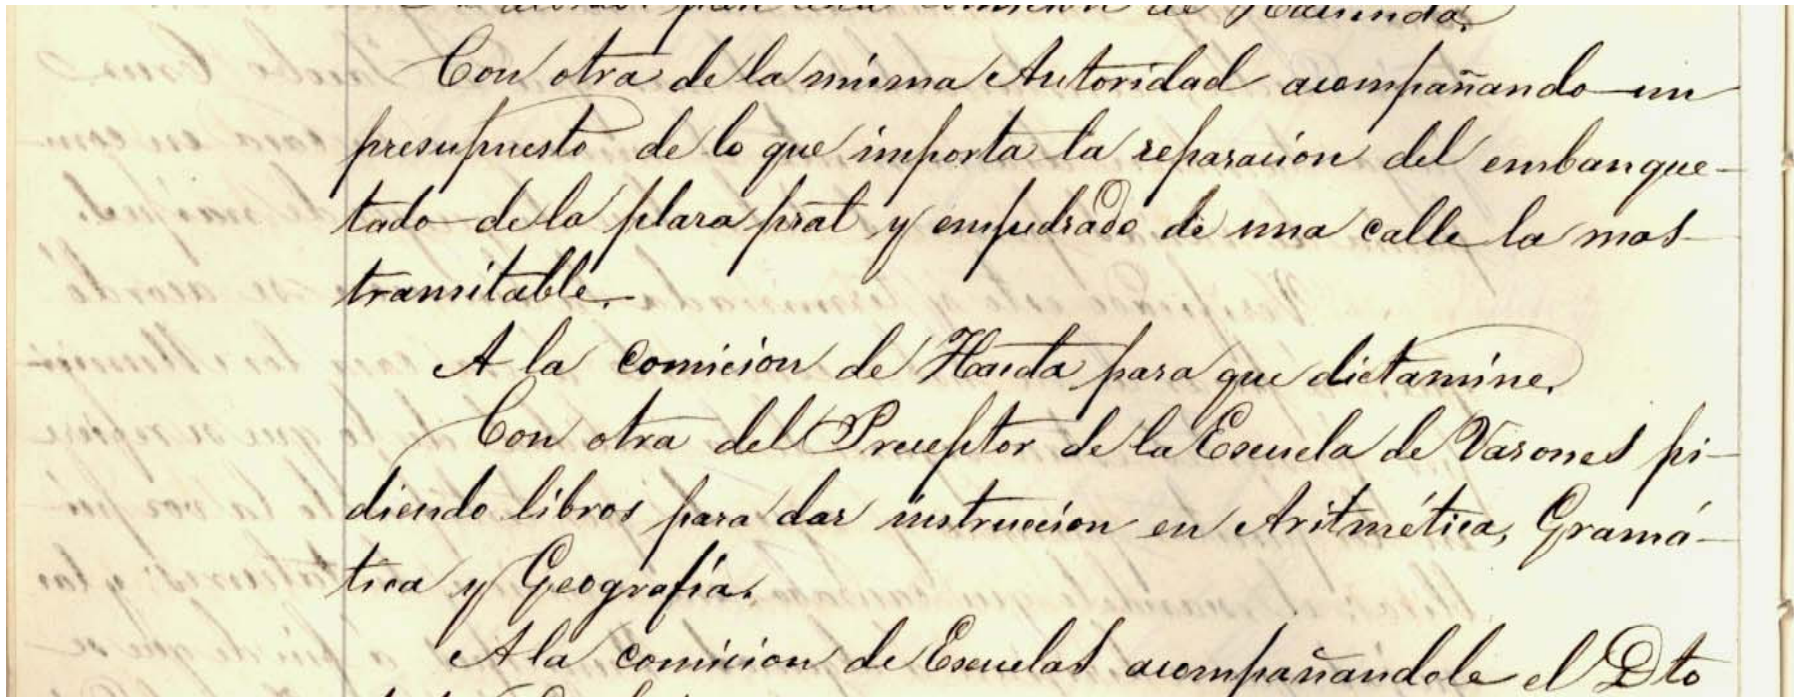 comision de Hacienda.
Con otra de la misma Autoridad acompañando un
presupuesto de lo que importa la reparacion del embanque-
tado de la plaza pral y empedrado de una calle la mas
transitable.
A la comicion de Hacida para que dictamine.
Con otra del Preceptor de la Escuela de Varones pi-
diendo libros para dar instruccion en Aritmética, Gramá-
tica y Geografía.
A la comicion de Escuelas acompañandole el Dto